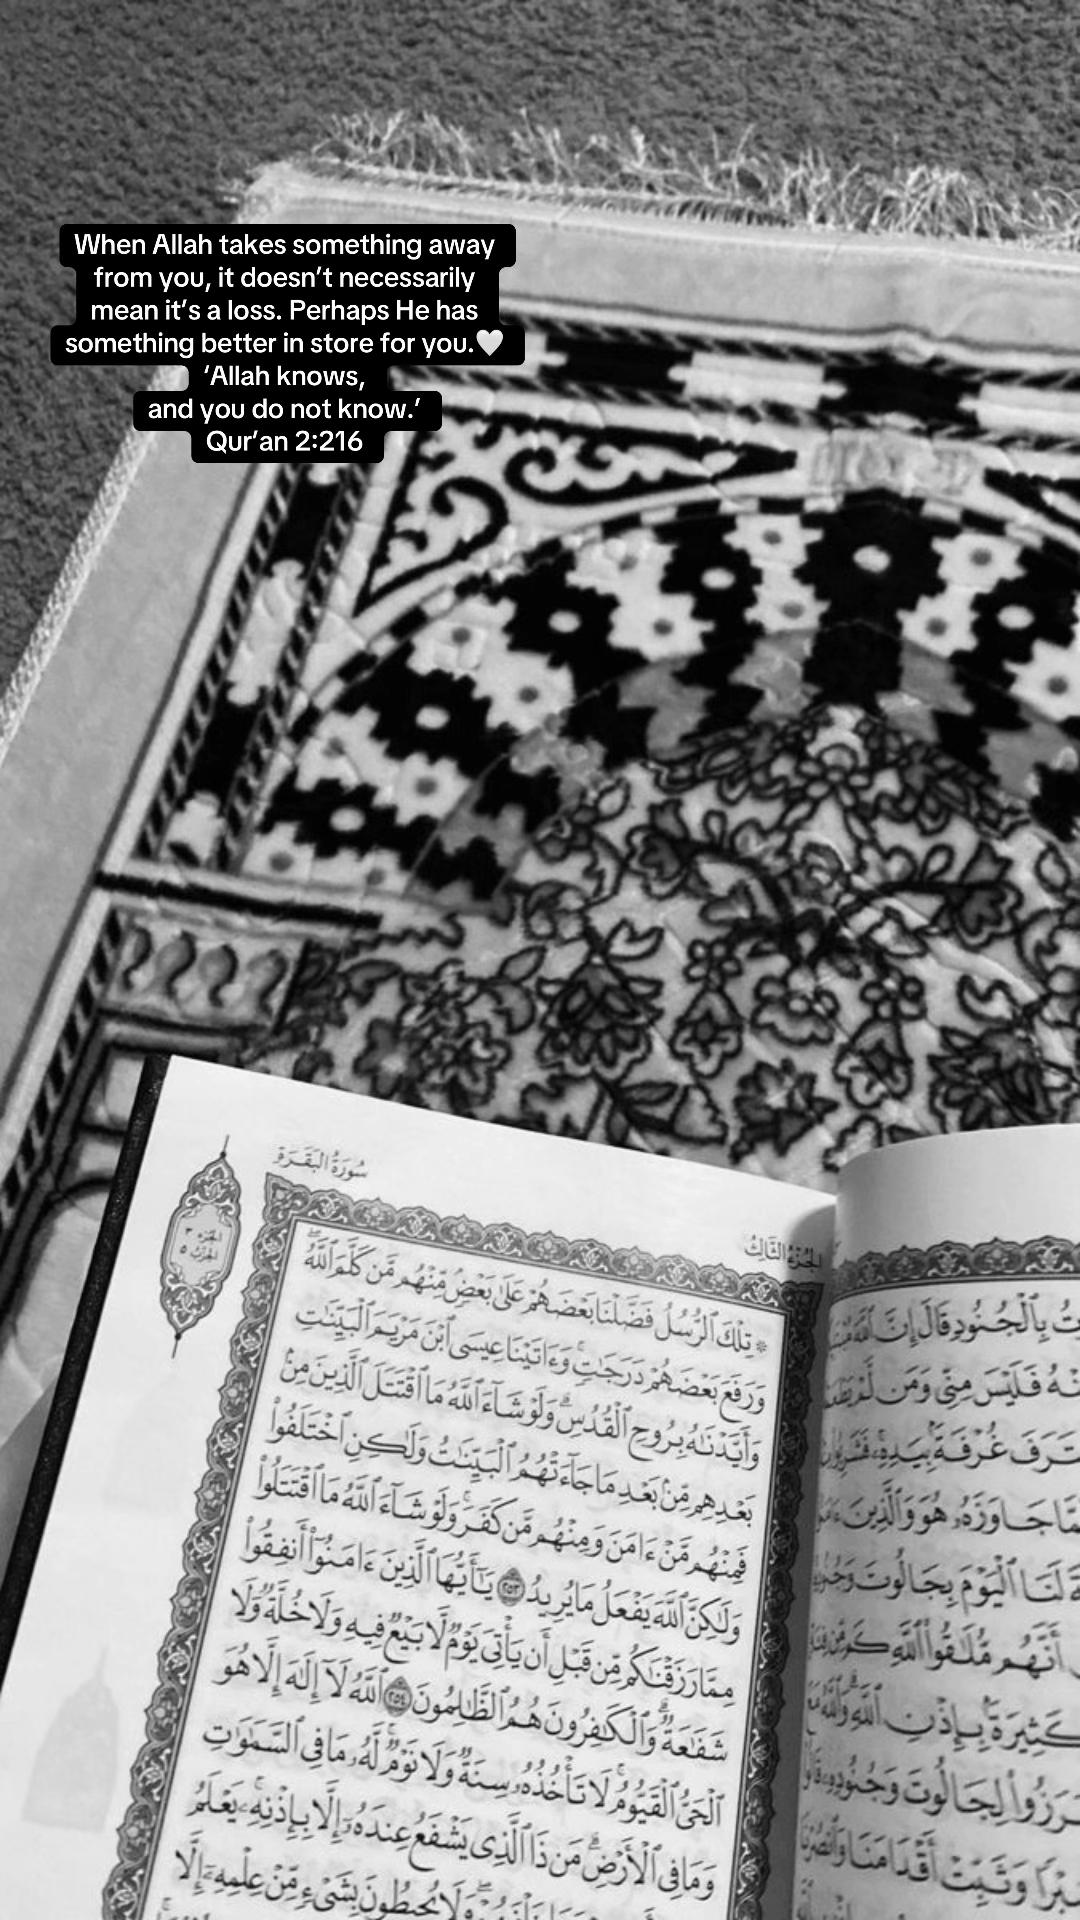 When Allah takes something away
from you, it doesn’t necessarily
mean it’s a loss. Perhaps He has
something better in store for you.🤍
‘Allah knows,
and you do not know.’
Qur’an 2:216
سُورَةُ البَقَرَةِ
الجُزْءُ الثَّالِثُ
الجزء ٣
الحزب ٥
۞ تِلْكَ ٱلرُّسُلُ فَضَّلْنَا بَعْضَهُمْ عَلَىٰ بَعْضٍۘ مِّنْهُم مَّن كَلَّمَ ٱللَّهُۖ
وَرَفَعَ بَعْضَهُمْ دَرَجَٰتٍۚ وَءَاتَيْنَا عِيسَى ٱبْنَ مَرْيَمَ ٱلْبَيِّنَٰتِ
وَأَيَّدْنَٰهُ بِرُوحِ ٱلْقُدُسِۗ وَلَوْ شَآءَ ٱللَّهُ مَا ٱقْتَتَلَ ٱلَّذِينَ مِنۢ
بَعْدِهِم مِّنۢ بَعْدِ مَا جَآءَتْهُمُ ٱلْبَيِّنَٰتُ وَلَٰكِنِ ٱخْتَلَفُوا۟
فَمِنْهُم مَّنْ ءَامَنَ وَمِنْهُم مَّن كَفَرَۚ وَلَوْ شَآءَ ٱللَّهُ مَا ٱقْتَتَلُوا۟
وَلَٰكِنَّ ٱللَّهَ يَفْعَلُ مَا يُرِيدُ ٢٥٣ يَٰٓأَيُّهَا ٱلَّذِينَ ءَامَنُوٓا۟ أَنفِقُوا۟
مِمَّا رَزَقْنَٰكُم مِّن قَبْلِ أَن يَأْتِىَ يَوْمٌ لَّا بَيْعٌ فِيهِ وَلَا خُلَّةٌ وَلَا
شَفَٰعَةٌۗ وَٱلْكَٰفِرُونَ هُمُ ٱلظَّٰلِمُونَ ٢٥٤ ٱللَّهُ لَآ إِلَٰهَ إِلَّا هُوَ
ٱلْحَىُّ ٱلْقَيُّومُۚ لَا تَأْخُذُهُۥ سِنَةٌ وَلَا نَوْمٌۚ لَّهُۥ مَا فِى ٱلسَّمَٰوَٰتِ
وَمَا فِى ٱلْأَرْضِۗ مَن ذَا ٱلَّذِى يَشْفَعُ عِندَهُۥٓ إِلَّا بِإِذْنِهِۦۚ يَعْلَمُ
وَلَا يُحِيطُونَ بِشَىْءٍ مِّنْ عِلْمِهِۦٓ إِلَّا
بِٱلْجُنُودِ قَالَ إِنَّ ٱللَّهَ
فَلَيْسَ مِنِّى وَمَن لَّمْ
غُرْفَةًۢ بِيَدِهِۦۚ
جَاوَزَهُۥ هُوَ وَٱلَّذِينَ
لَنَا ٱلْيَوْمَ بِجَالُوتَ
أَنَّهُم مُّلَٰقُوا۟ ٱللَّهِ كَم مِّن
كَثِيرَةًۢ بِإِذْنِ ٱللَّهِۗ وَٱللَّهُ مَعَ
لِجَالُوتَ وَجُنُودِهِۦ
وَثَبِّتْ أَقْدَامَنَا